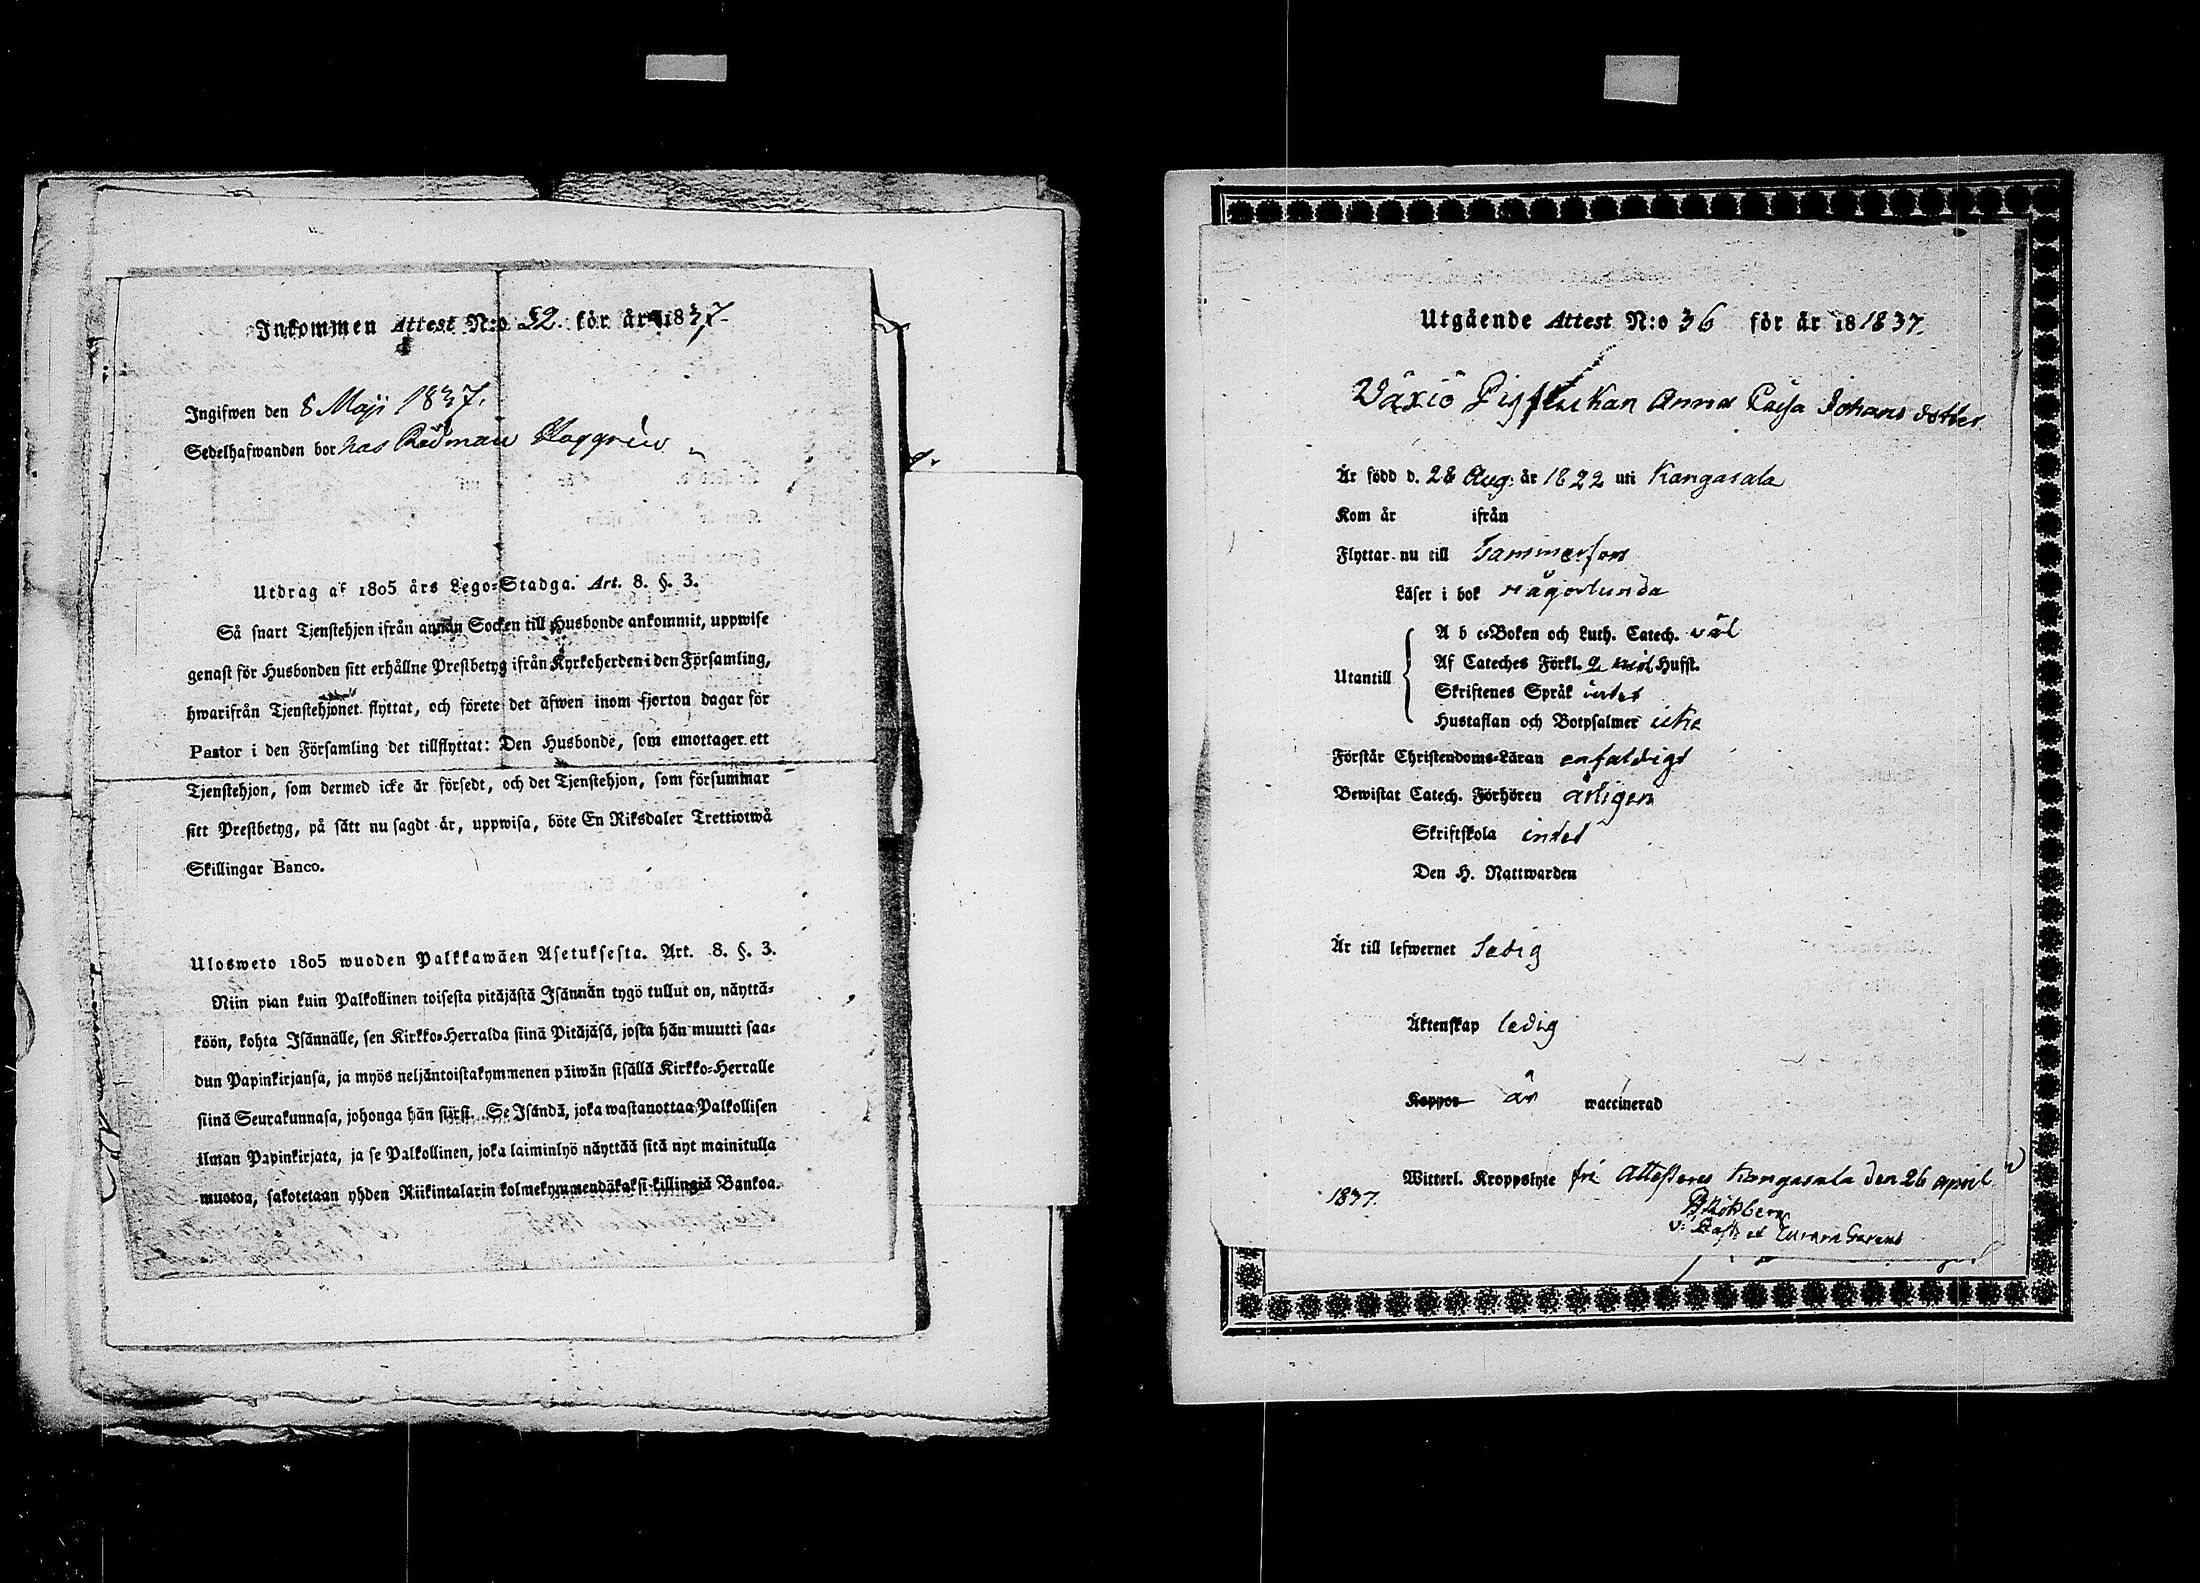 Inkommen Attest N:o 52. för år 1837
Ingifwen den 8 Maji 1837.
Sedelhafwanden bor hos Rådman
Utdrag af 1805 års Lego-Stadga. Art. 8. §. 3.
Så snart Tjenstehjon ifrån annan Socken till Husbonde ankommit, uppwise
genast för Husbonden sitt erhållne Prestbetyg ifrån Kyrkoherden i den Församling,
hwarifrån Tjenstehjonet flyttat, och förete det äfwen inom fjorton dagar för
Pastor i den Församling det tillflyttat: Den Husbonde, som emottager ett
Tjenstehjon, som dermed icke är försedt, och det Tjenstehjon, som försummar
sitt Prestbetyg, på sätt nu sagdt är, uppwisa, böte En Riksdaler Trettiotwå
Skillingar Banco.
Ulosweto 1805 wuoden Palkkawäen Asetuksesta. Art. 8. §. 3.
Niin pian kuin Palkollinen toisesta pitäjästä Isännän tygö tullut on, näyttä-
köön, kohta Isännälle, sen Kirkko-Herralda siinä Pitäjäsä, josta hän muutti saa-
dun Papinkirjansa, ja myös neljäntoistakymmenen päiwän sisällä Kirkko-Herralle
siinä Seurakunnasa, johonga hän siirsi. Se Isändä, joka wastanottaa Palkollisen
ilman Papinkirjata, ja se Palkollinen, joka laiminlyö näyttää sitä nyt mainitulla
muotoa, sakotetaan yhden Riikintalarin kolmekymmendäkaksi killingiä Bankoa.
Utgående Attest N:o 36 för år 18 1837.
Wäxiö Pigflickan Anna Caisa Johansdotter
Är född d. 28 Aug: år 1822 uti Kangasala
Kom år ifrån
Flyttar nu till Tammerfors
Läser i bok någorlunda
Utantill
A b c-Boken och Luth. Catech. väl
Af Cateches Förkl. 2 Hufst.
Skriftenes Språk intet
Hustaflan och Botpsalmer icke
Förstår Christendoms-Läran enfaldigt
Bewistat Catech. Förhören årligen
Skriftskola intet
Den H. Nattwarden
Är till lefwernet sedig
Äktenskap ledig
Koppor är waccinerad
Witterl. Kroppslyte fri Attesteres Kangasala den 26 april
1837.
v: Past: